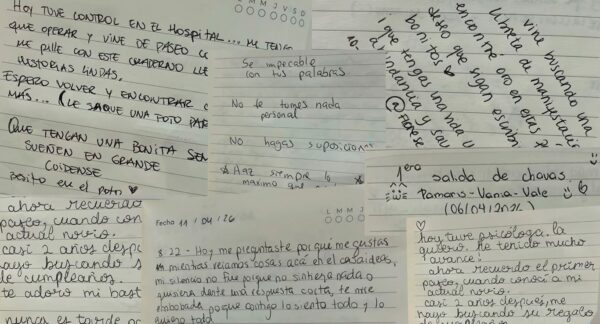 HOY TUVE CONTROL EN EL HOSPITAL... ME TENGO
QUE OPERAR Y VINE DE PASEO
ME PILLE CON ESTE CUADERNO LLE
HISTORIAS LINDAS.
ESPERO VOLVER Y ENCONTRAR
MAS... (LE SAQUE UNA FOTO PARA
QUE TENGAN UNA BONITA SEM
SUEÑEN EN GRANDE
CUIDENSE
Besito en el poto ♥
L M M J V S D
Se impecable
con tus palabras
No te tomes nada
personal
No hagas suposicion
Haz siempre lo
maximo que
vine buscando una
libreta de manifestaci
encontré oro en estas
deseo que sigan escribi
bonitos
que tengas una linda
abundancia y sal
1ero
salida de chavas
Pamans-Vania-Vale
(06/04/2026)
ahora recuerdo
paseo, cuando con
actual novio.
casi 2 años despu
hayo buscando s
de cumpleaños.
te adoro mi bast
nunca es tarde
Fecha 11/04/26
L M M J
8:22 - Hoy me preguntaste por qué me gustas
mientras veíamos cosas acá en el casaideas,
mi silencio no fue porque no sintiese nada o
quisiera darte una respuesta corta, te miré
embobada porque contigo lo siento todo y lo
quiero todo
♡
hoy tuve psicóloga. la
quiero. he tenido mucho
avance!
ahora recuerdo el primer
paseo, cuando conocí a mi
actual novio.
casi 2 años después, me
hayo buscando su regalo
de cumpleaños